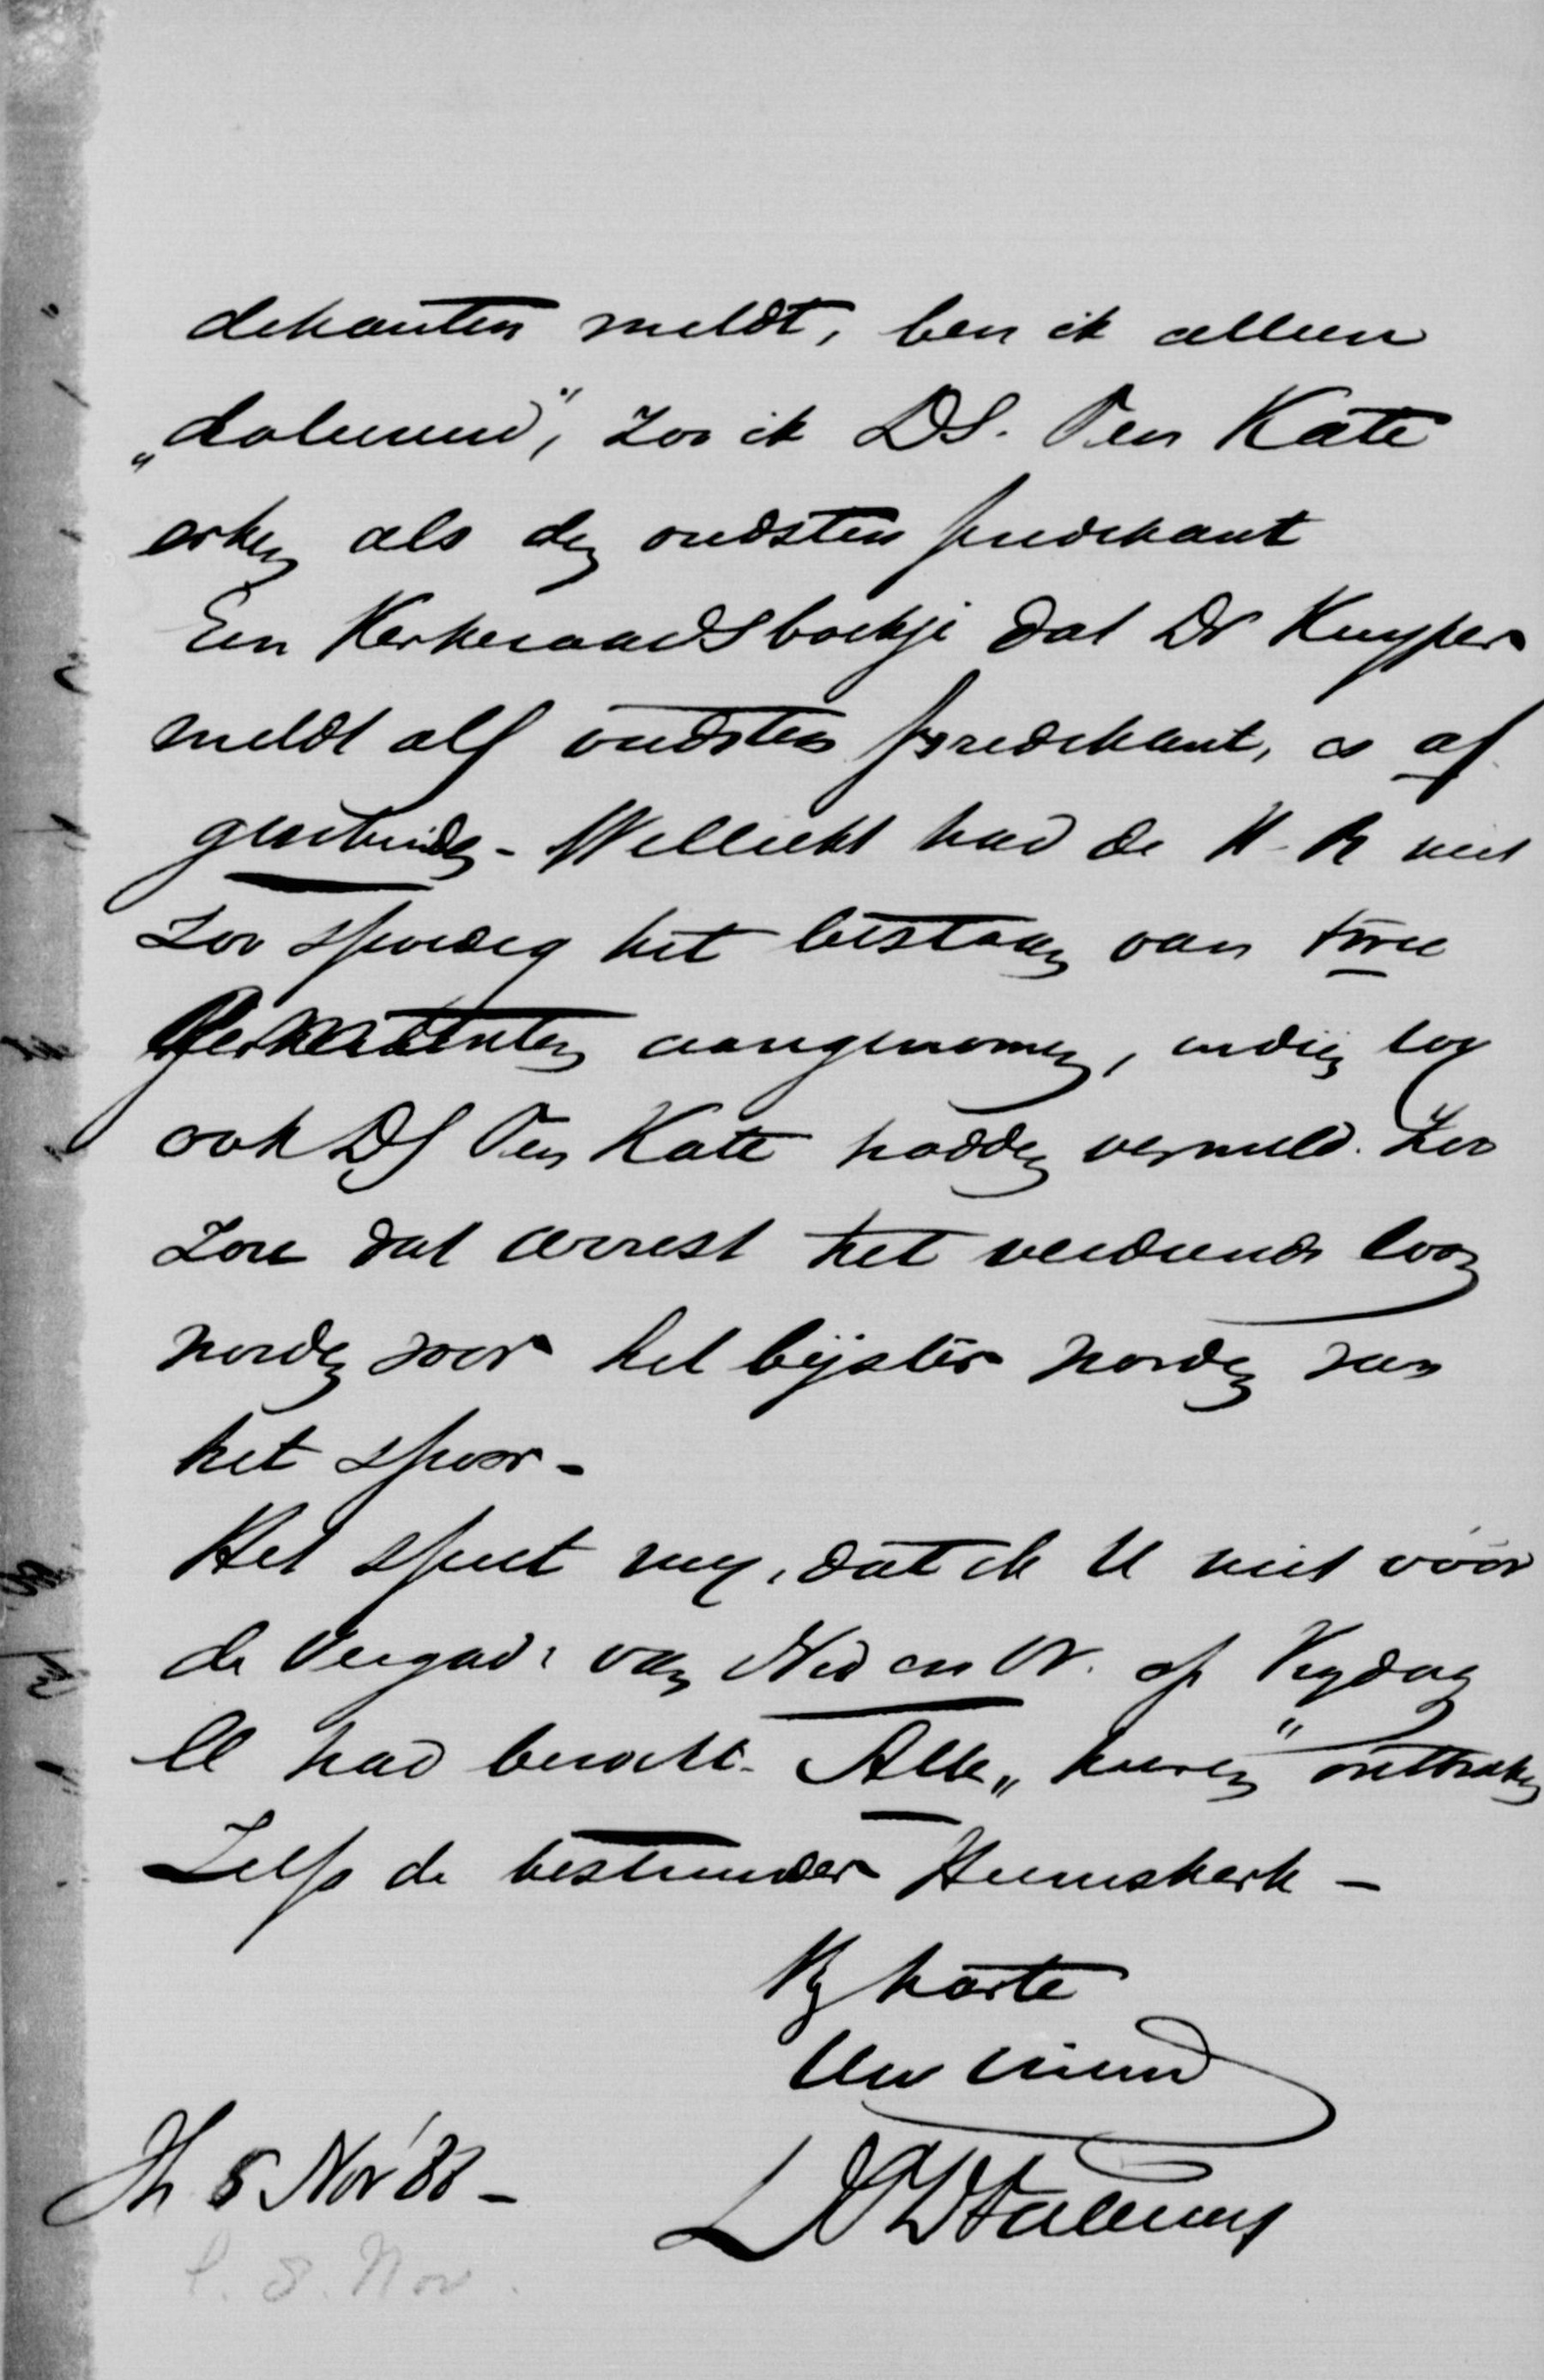 dikanten meldt, ben ik alleen
„doleerend”, zoo ik DS. Ten Kate
erken als den oudsten predikant
Een Kerkeraadsboekje dat Dr Kuyper
meldt als oudsten predikant, is af
gescheiden - Wellicht had de H. R niet
zoo spoedig het bestaan van twee
aangenomen, indien wy
ook DS Ten Kate hadden vermeld. Zoo
zou dat arrest het verdiende loon
worden voor het bijster worden van
het spoor -
Het speet my, dat ik U niet vóór
de Vergad: van Ned en Or. op Vrydag
ll had bezocht. Alle „heeren” ontbraken
Zelfs de bestuurder Heemskerk -
Ty harte
Uw vriend
H 5 Nov '88 -
8. Nov.